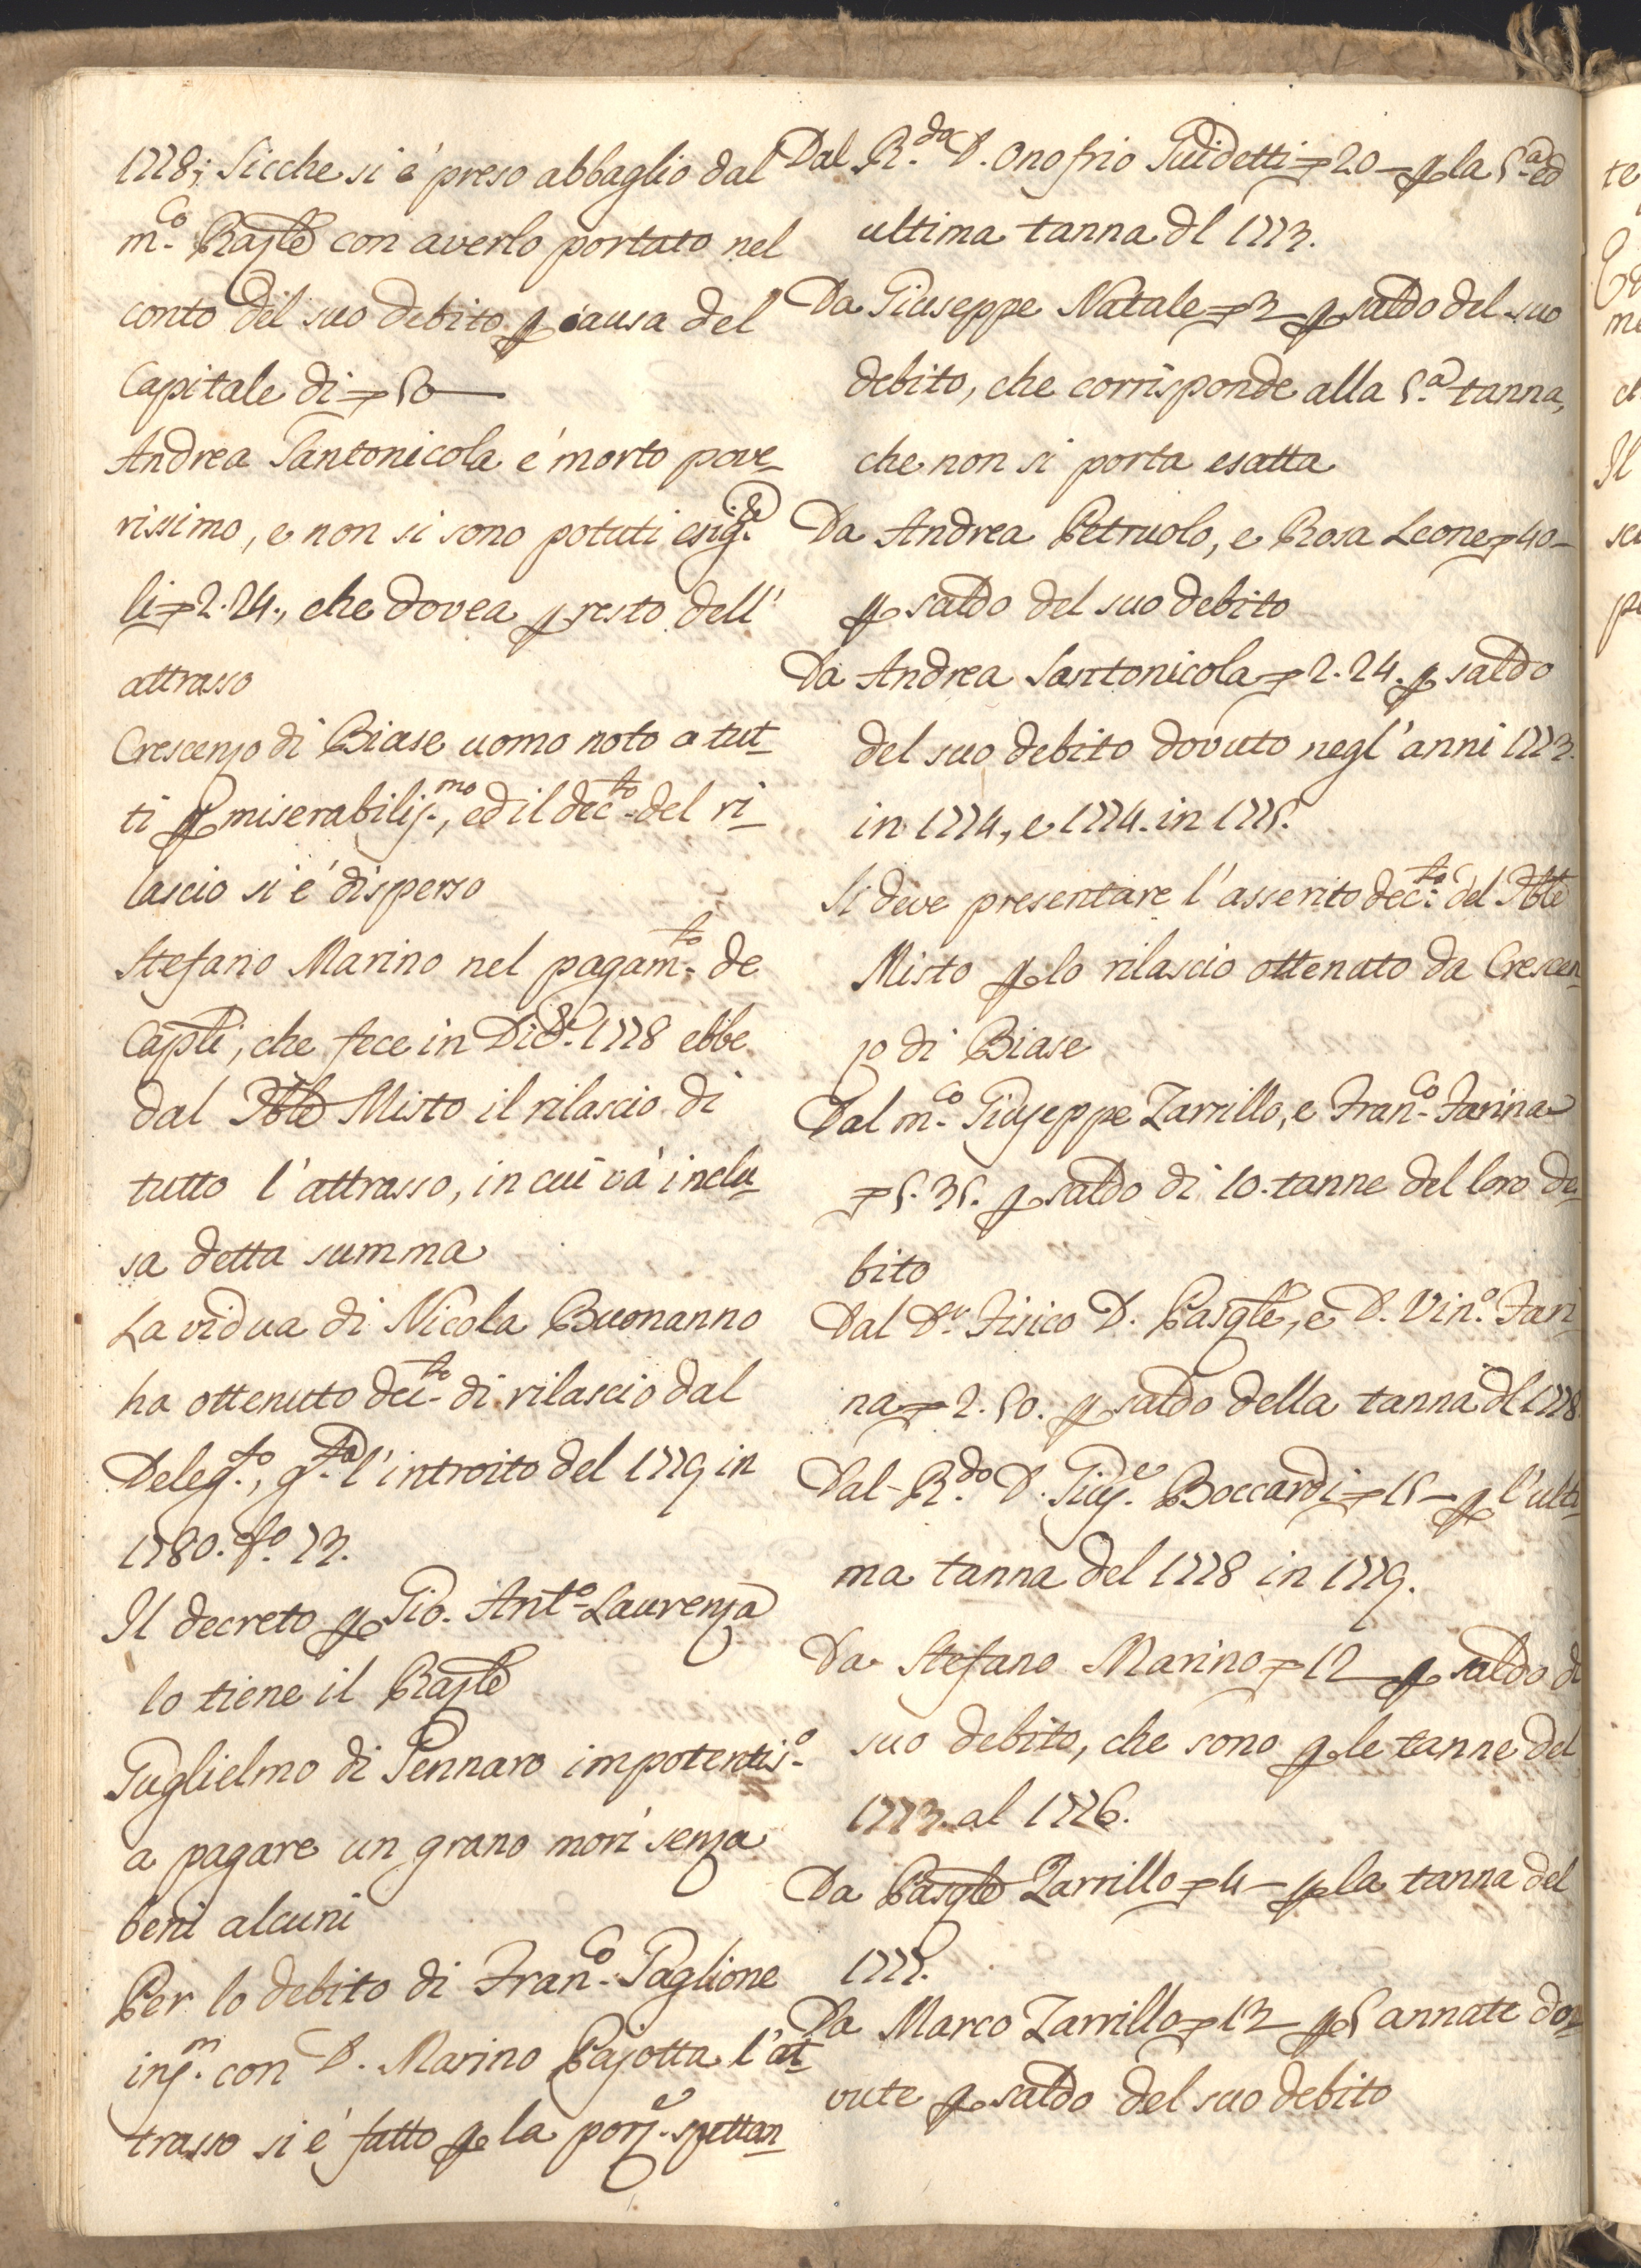 1778; Sicche si é preso abbaglio dal
m.co Rajle con averlo portato nel
conto del suo debito p causa del
Capitale di 50
Andrea Santonicola é morto pove_
rissimo, e non si sono potuti esig.re
li 2.24., che dovea p resto dell'
attrasso
Crescenzo di Biase uomo noto a tut_
ti p miserabiliss.mo, ed il dec.to del ri_
lascio si é disperso
Stefano Marino nel pagam.to de
Capli, che fece in Di8.e 1778 ebbe
dal Pble Misto il rilascio di
tutto l'attrasso, in cui và inclu_
sa detta summa
La vidua di Nicola Buonanno
ha ottenuto dec.to di rilascio dal
Deleg.to, g.ta l'introito del 1779 in
1780. fo. 73.
Il decreto p Gio. Ant.o Laurenza
lo tiene il Rajle
Guglielmo di Gennaro impotentis.o
a pagare un grano morì senza
beni alcuni
Per lo debito di Fran.co Paglione
ins.m con D. Marino Pajotta l'at_
trasso si é fatto p la porz.e spettan_
Dal R.do D. Onofrio Guidetti 20_ p la 5.a ed
ultima tanna dl 1773.
Da Giuseppe Natale 3_ p saldo del suo
debito, che corrisponde alla 5.a tanna,
che non si porta esatta
Da Andrea Petruolo, e Rosa Leone 40_
p saldo del suo debito
Da Andrea Santonicola 2.24. p saldo
del suo debito dovuto negl'anni 1773.
in 1774., e 1774. in 1775.
Si deve presentare l'asserito dec.to del Pble
Misto p lo rilascio ottenuto da Crescen_
zo di Biase
Dal m.co Giuseppe Zarrillo, e Fran.co Farina
5.35. p saldo di 10. tanne del loro de_
bito
Dal D.r Fisico D. Pasqle, e D. Vin.o Fari_
na 2.50. p saldo della tanna dl 1778
Dal R.do D. Gius.e Boccardi 15_ p l'ulti_
ma tanna del 1778 in 1779.
Da Stefano Marino 12_ p saldo de
suo debito, che sono p le tanne del
1773. al 1776.
Da Pasqle Zarrillo 4_ p la tanna del
1775.
Da Marco Zarrillo 13_ p 5 annate do_
vute p saldo del suo debito